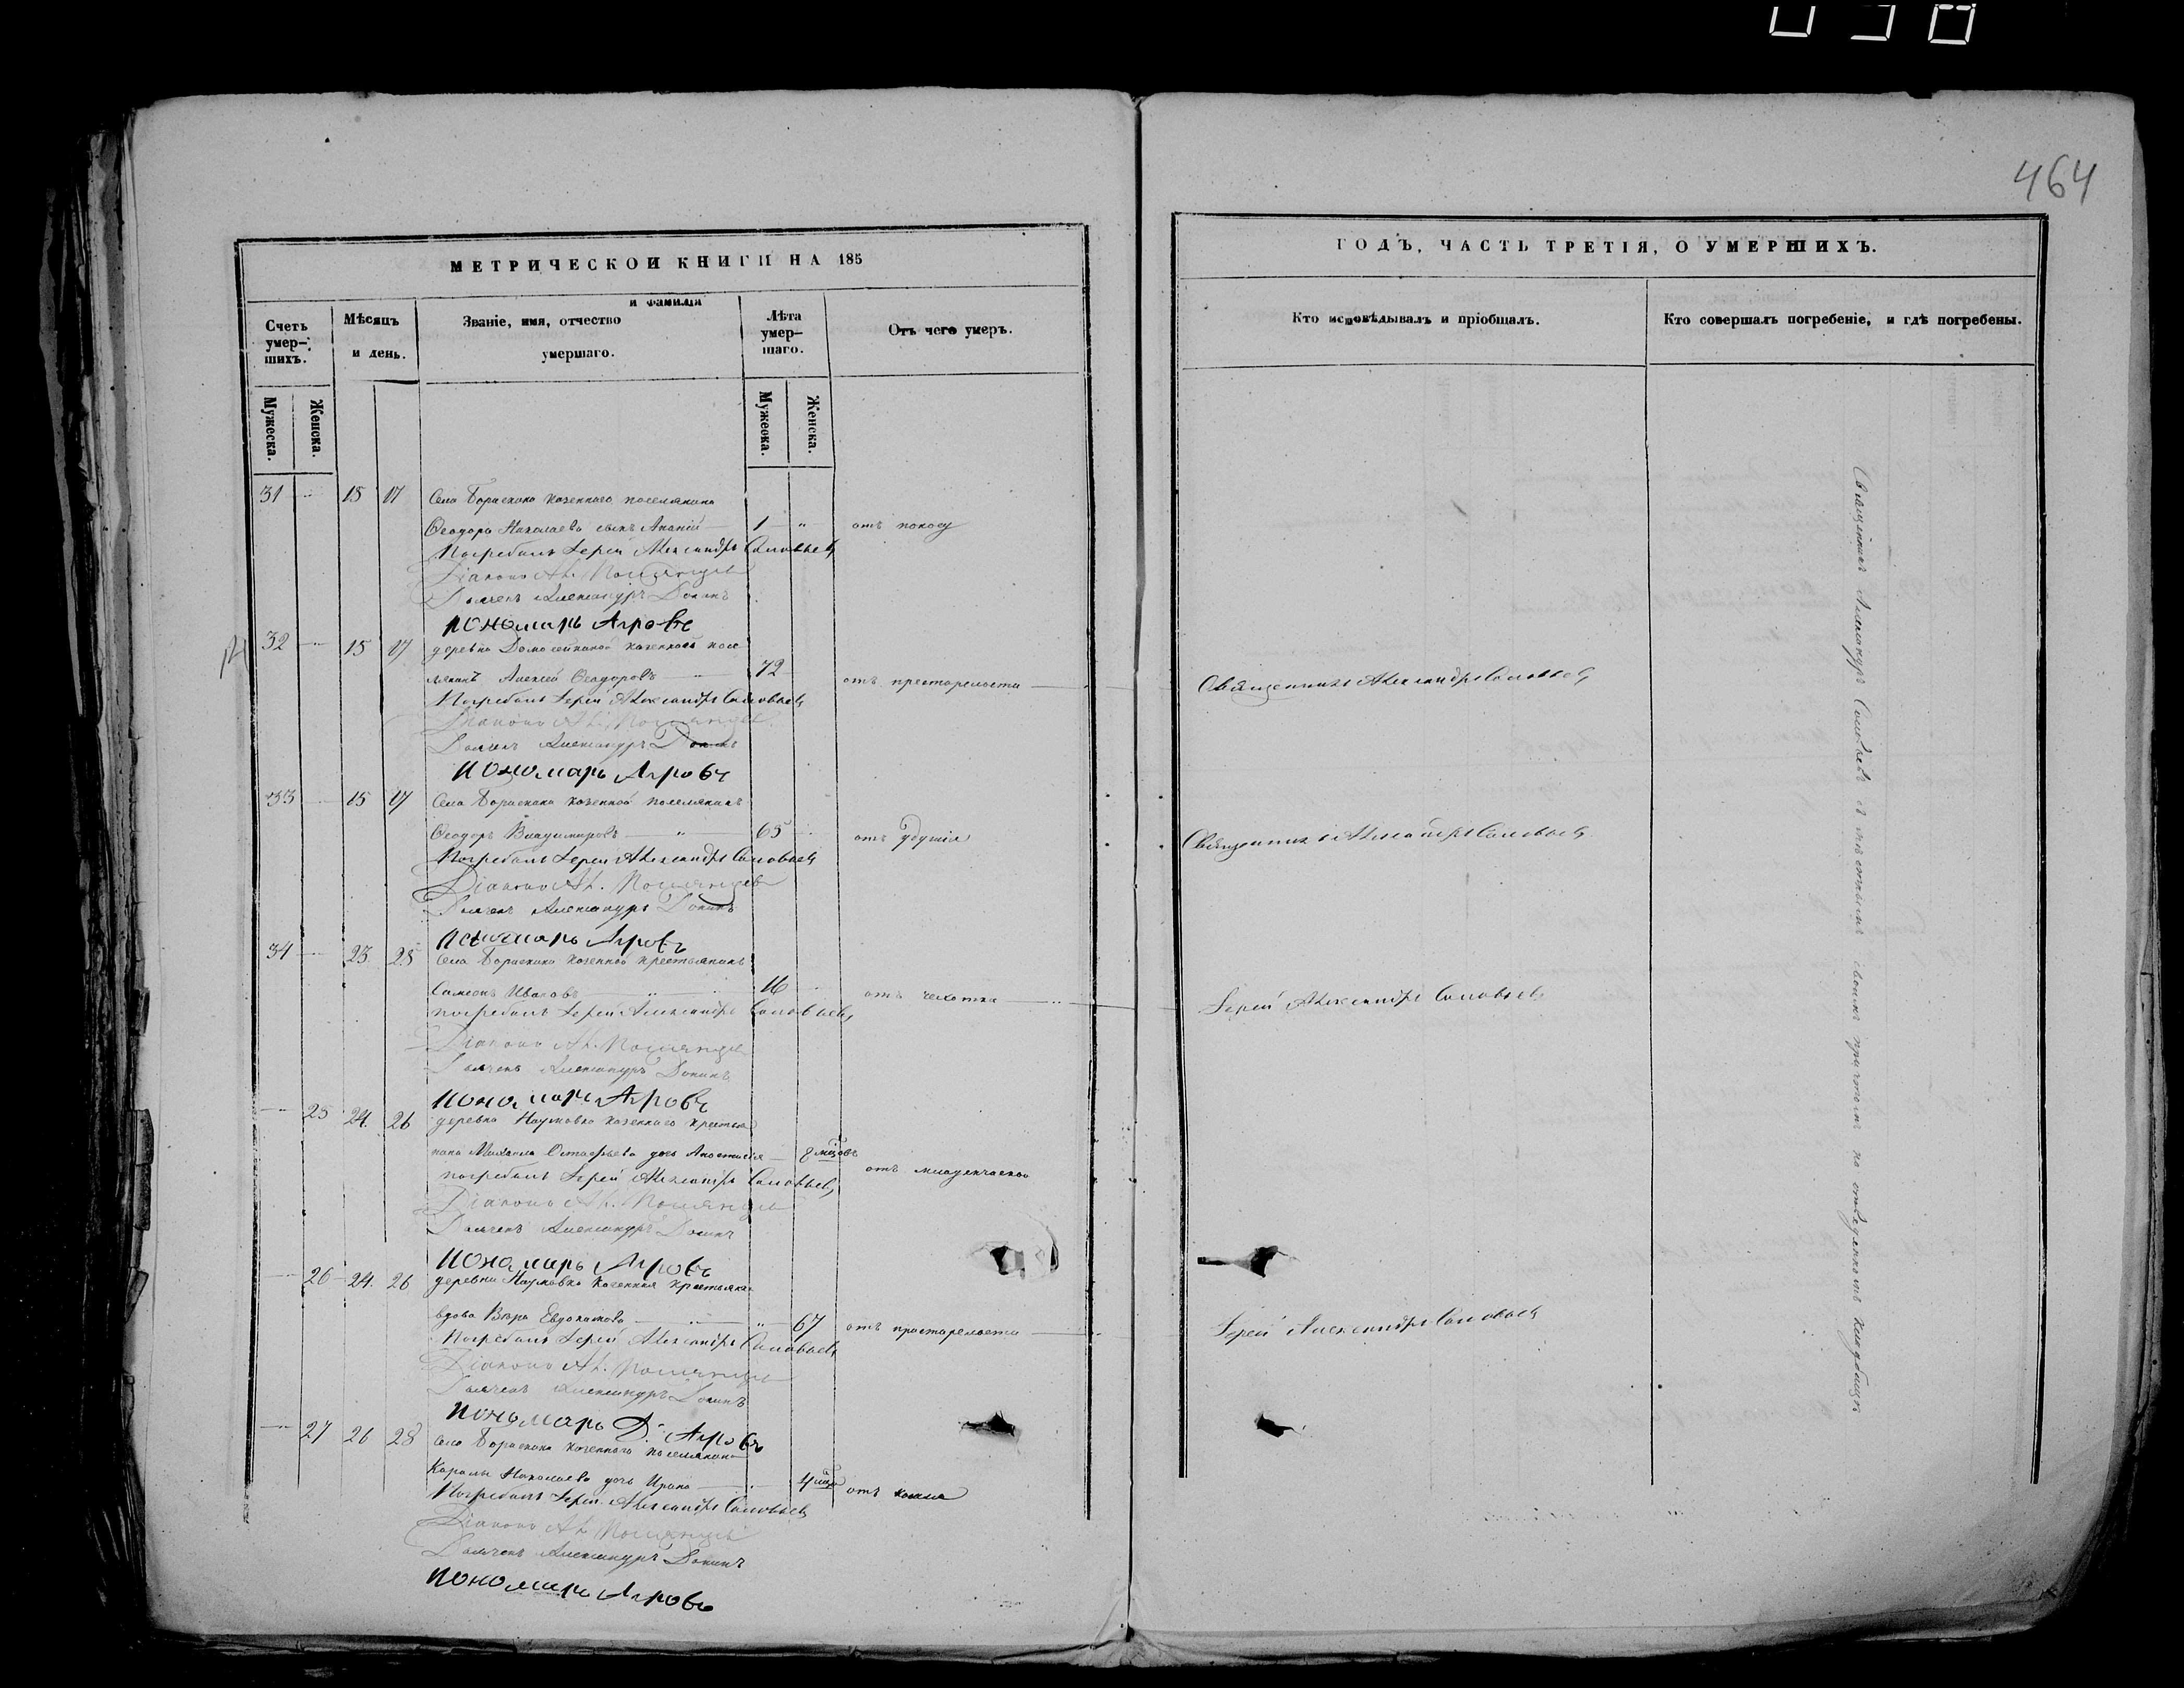 038
464
МЕТРИЧЕСКОЙ КНИГИ НА 185
Счетъ умер-шихъ.
Мѣсяцъ и день.
Званіе, имя, отчество и фамилія умершаго.
Лѣта умер-шаго.
Отъ чего умеръ.
Мужеска.
Женска.
Мужеска.
Женска.
31 15 17 Села Борискина казеннаго поселянина
Ѳеодора Николаева сынъ Ананій 1 отъ поносу
Погребалъ Іерей Александръ Соловьевъ
Діаконъ Ал.
Дьячекъ Александръ
Пономарь Агровъ
32 15 17 деревни казенной посе
лянинъ Алексей Ѳеодоровъ 72 отъ престарелости
Погребалъ Іерей Александръ Соловьевъ
Діаконъ Ал.
Дьячекъ Александръ
Пономарь Агровъ
33 15 17 Села Борискина казенной поселянинъ
Ѳеодоръ Владимировъ 65 отъ удушія
Погребалъ Іерей Александръ Соловьевъ
Діаконъ Ал.
Дьячекъ Александръ
Пономарь Агровъ
34 23 25 Села Борискина казенной крестьянинъ
Симеонъ Ивановъ 16 отъ чахотки
погребалъ Іерей Александръ Соловьевъ
Діаконъ Ал.
Дьячекъ Александръ
Пономарь Агровъ
25 24. 26 деревни Наумовки казеннаго крестья
нина Михаила Остафьева дочь Анастасія 8 мцовъ отъ младенческой
погребалъ Іерей Александръ Соловьевъ
Діаконъ Ал.
Дьячекъ Александръ
Пономарь Агровъ
26 24. 26 деревни Наумовки казенная крестьянка
вдова Вѣра Евдокимова 67 отъ престарелости
Погребалъ Іерей Александръ Соловьевъ
Діаконъ Ал.
Дьячекъ Александръ
Пономарь Д. Агровъ
27 26 28 Села Борискина казеннаго поселянина
Николаева дочь Ирина 4 мцр отъ кашля
Погребалъ Іерей Александръ Соловьевъ
Діаконъ Ал.
Дьячекъ Александръ
Пономарь Агровъ
ГОДЪ, ЧАСТЬ ТРЕТІЯ, О УМЕРШИХЪ.
Кто исповѣдывалъ и пріобщалъ.
Кто совершалъ погребеніе, и гдѣ погребены.
Священникъ Александръ Соловьевъ
Священникъ Александръ Соловьевъ
Іерей Александръ Соловьевъ
Іерей Александръ Соловьевъ
Священникъ Александръ Соловьевъ съ своимъ причтомъ на отведенномъ кладбищѣ